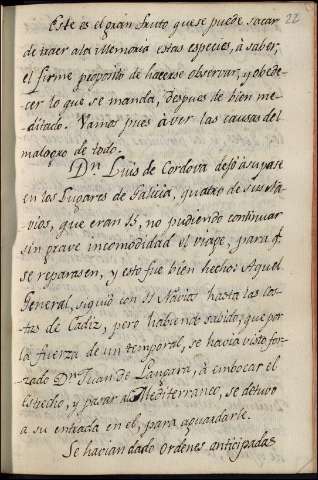 22
Este es el gran fruto que se puede sacar
de traer a la Memoria estas especies, à saber;
el firme proposito de hacerse observar, y obede-
cer lo que se manda, despues de bien me-
ditado. Vamos pues à ver las causas del
malogro de todo.
Dn. Luis de Cordova dejó a su pase
en los Lugares de Galicia, quatro de sus Na-
vios, que eran 15, no pudiendo continuar
sin grave incomodidad el viage, para q.
se reparasen, y esto fue bien hecho: Aquel
General, siguió con 11 Navios hasta las Cos-
tas de Cadiz, pero habiendo sabido, que por
la fuerza de un temporal, se havia visto for-
zado Dn. Juan de Langara, à embocar el
Estrecho, y pasar al Mediterraneo, se detuvo
a su entrada en el, para aguardarle.
Se hacian dado ordenes anticipadas